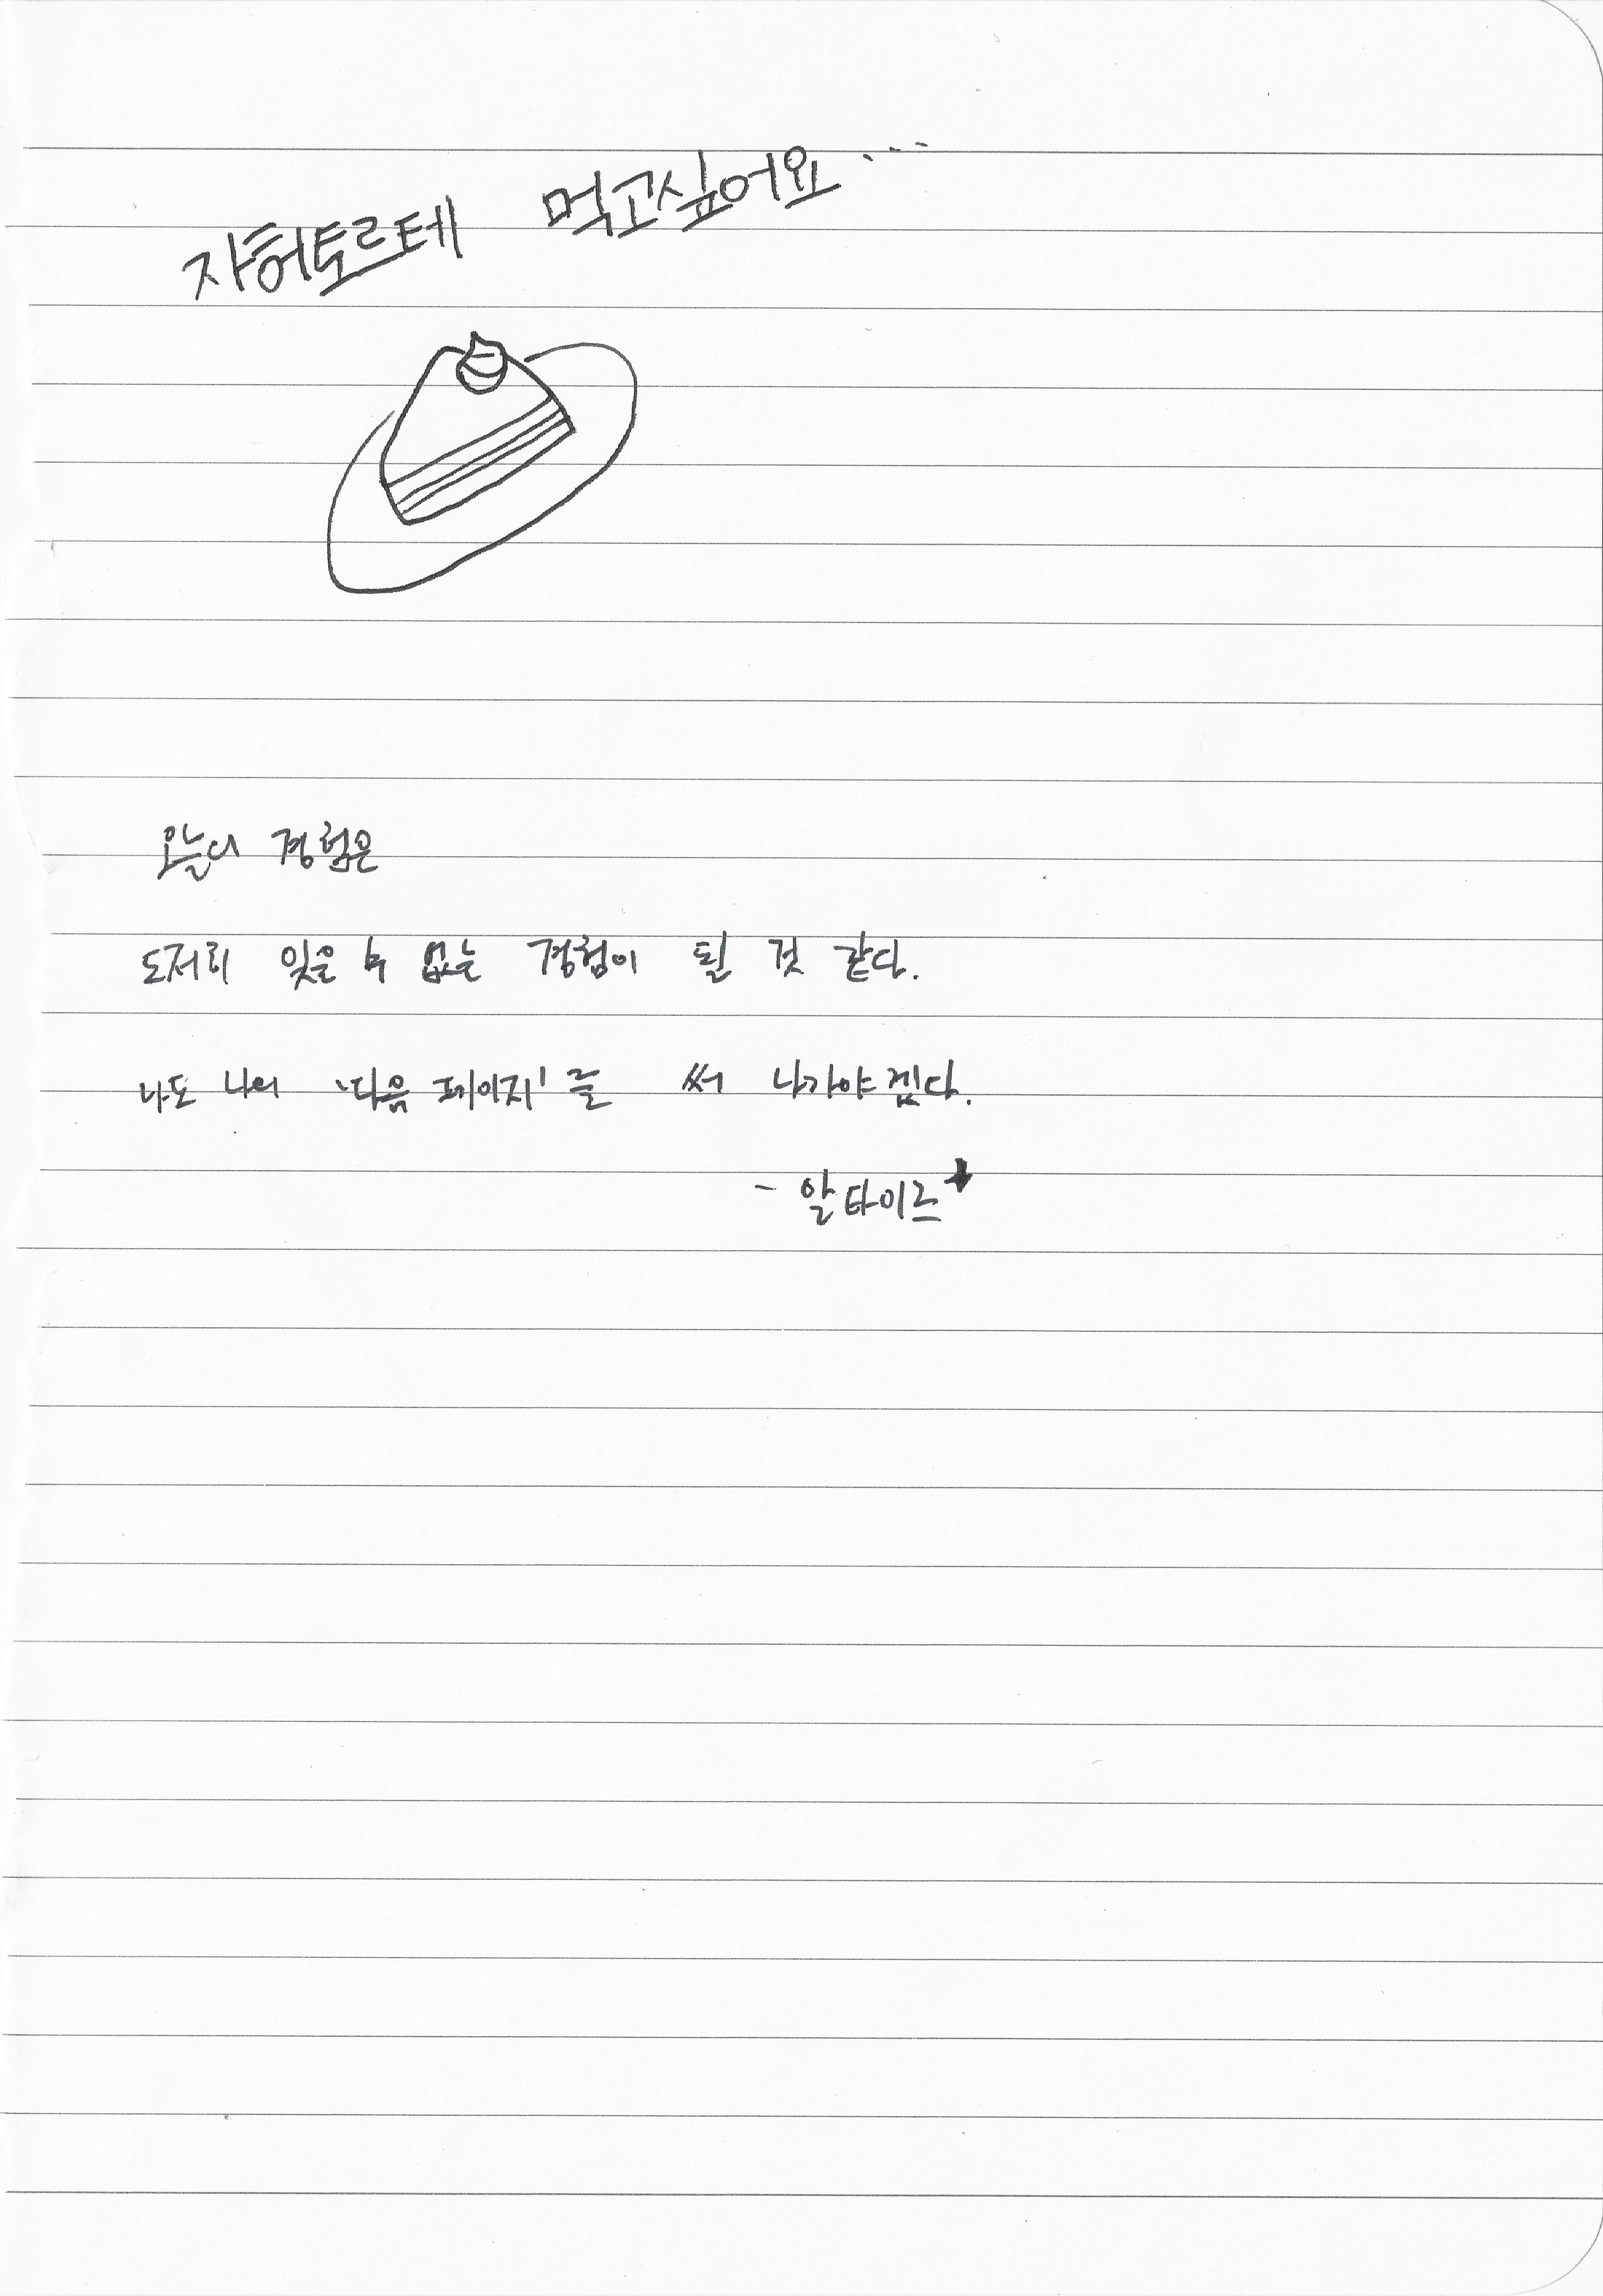 자허토르테 먹고싶어요...
오늘의 경험은
도저히 잊을 수 없는 경험이 될 것 같다.
나도 나의 '다음 페이지'를 써 나가야겠다.
- 알타이르